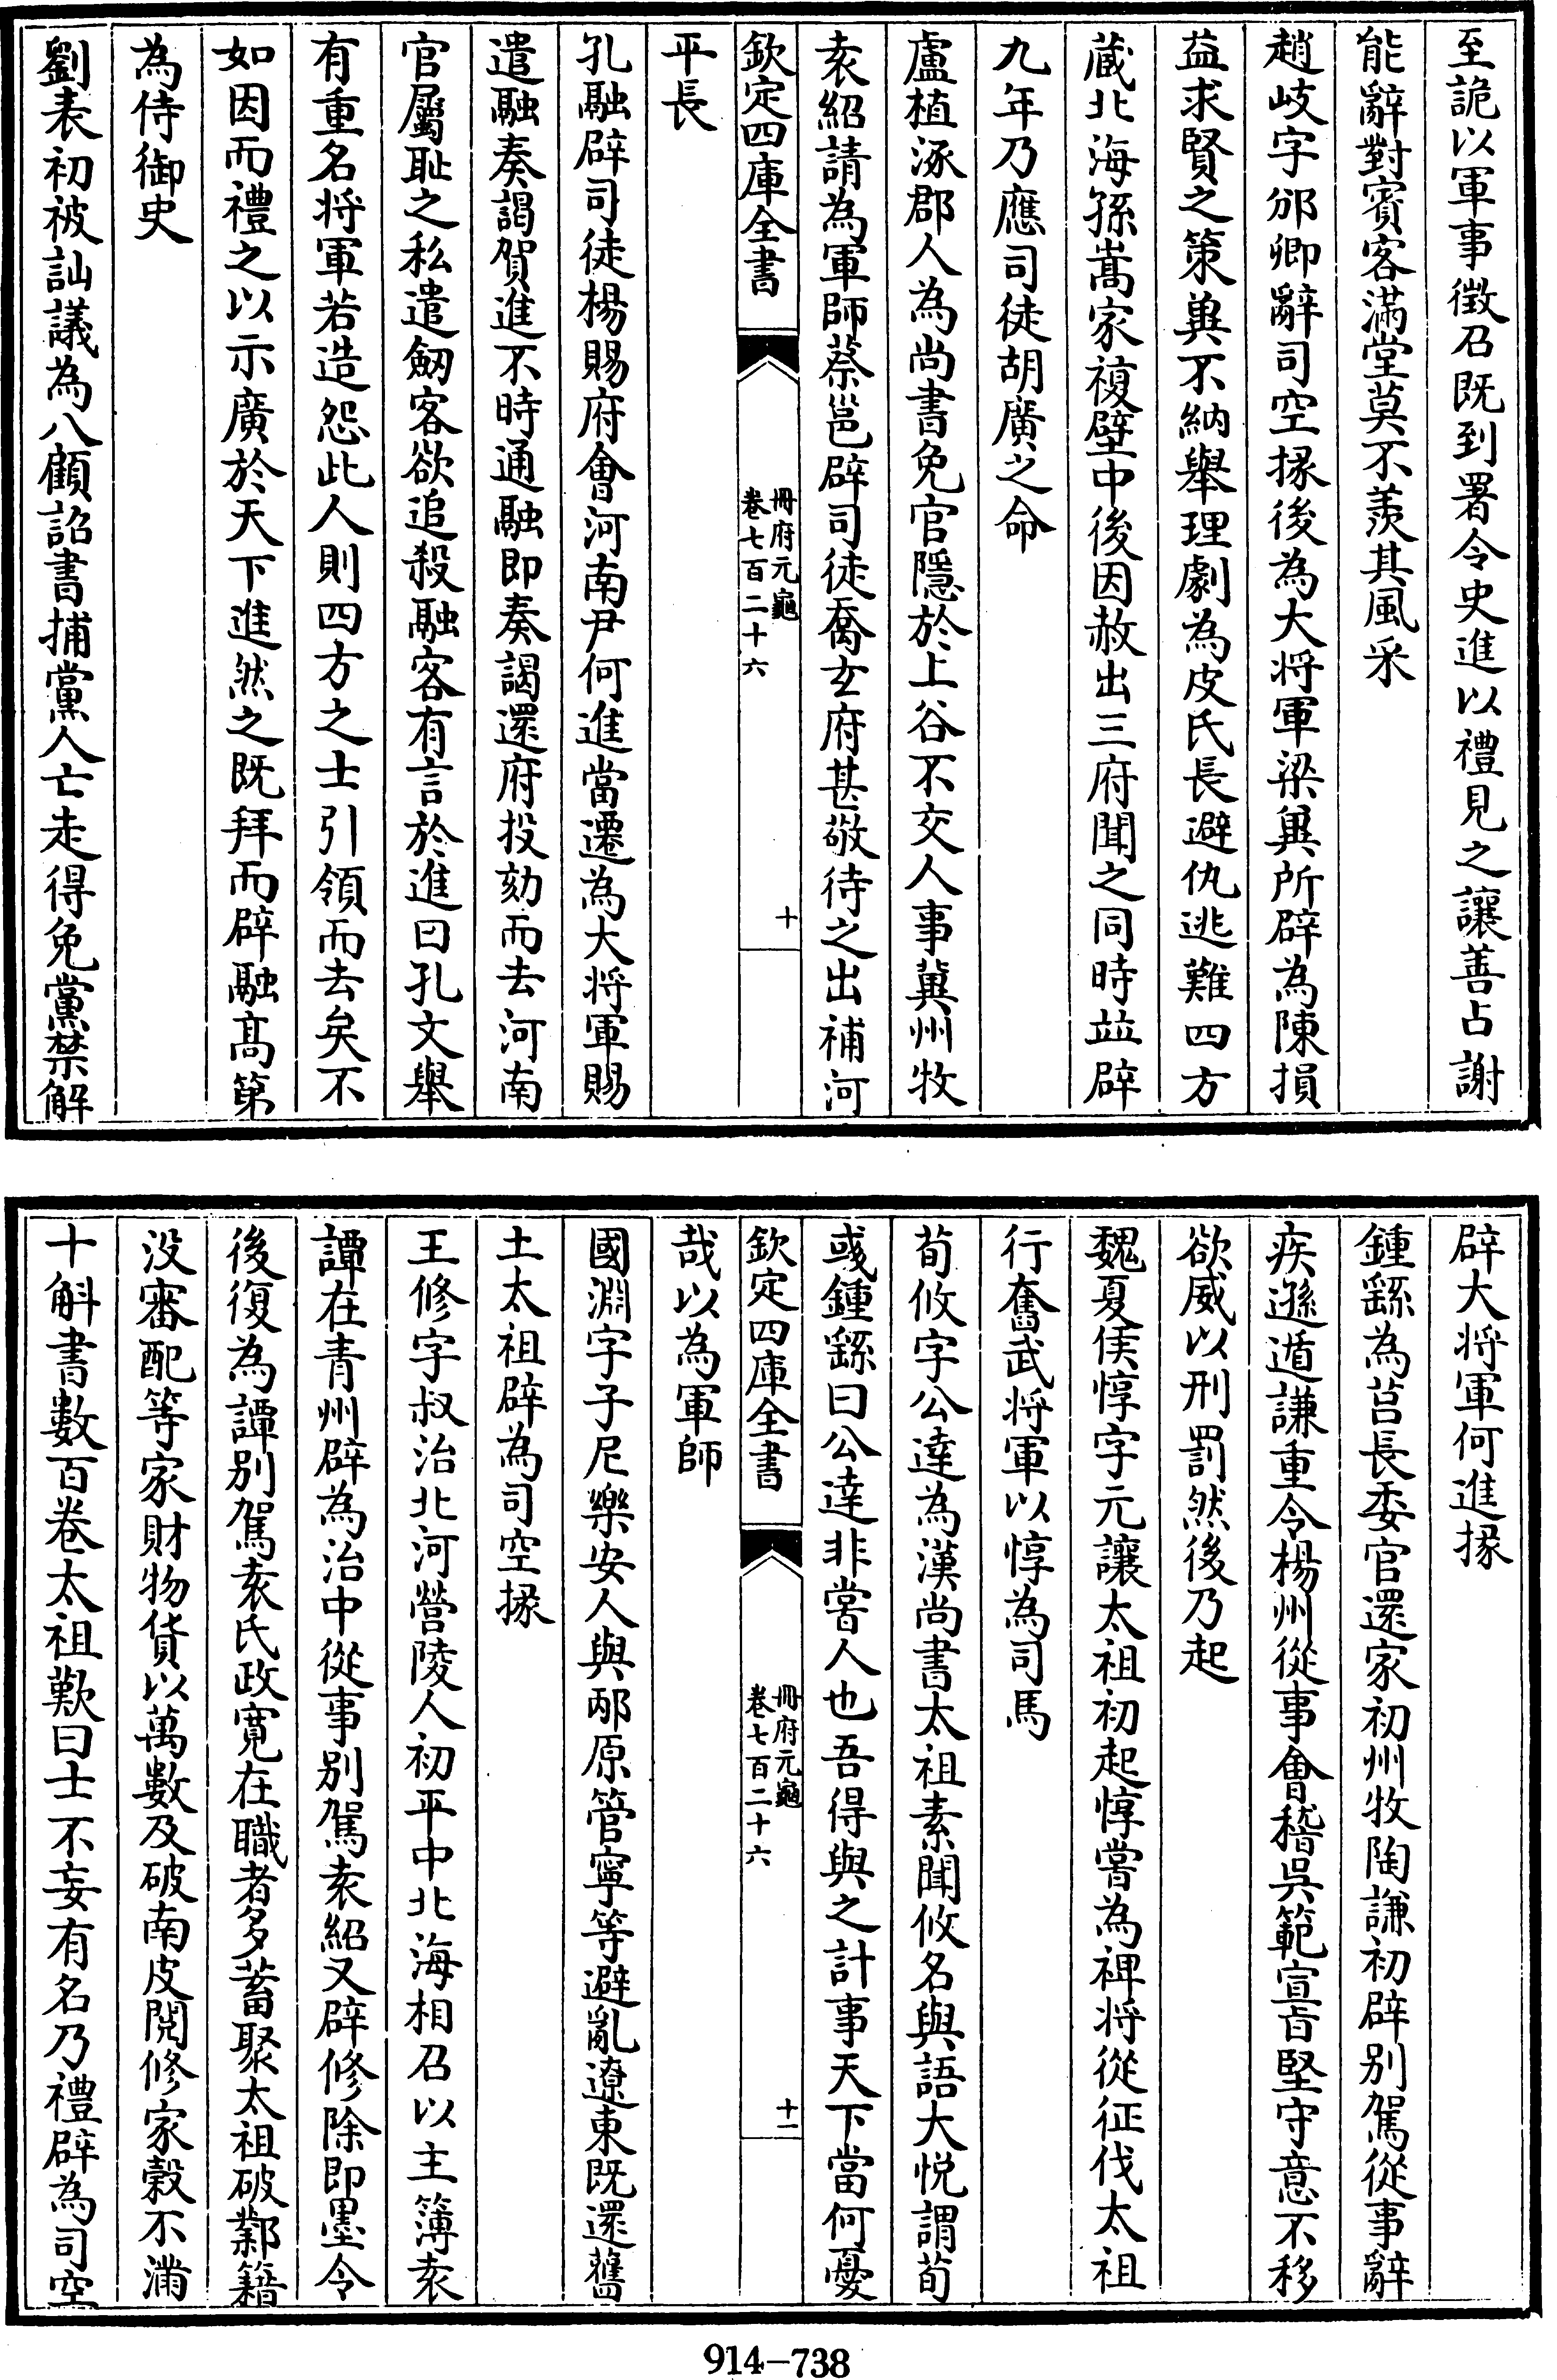 至詭以軍事徴召既到署令史進以禮見之讓善占謝
能辭對賓客滿堂莫不羨其風采
趙岐字邠卿辭司空掾後為大将軍梁冀所辟為陳損
益求賢之策冀不納舉理劇為皮氏長避仇逃難四方
蔵北海孫嵩家複壁中後因赦出三府聞之同時竝辟
九年乃應司徒胡廣之命
盧植涿郡人為尚書免官隱於上谷不交人事冀州牧
袁紹請為軍師蔡邕辟司徒喬玄府甚敬待之出補河
欽定四庫全書
冊府元龜
卷七百二十六
十
平長
孔融辟司徒楊賜府會河南尹何進當遷為大将軍賜
遣融奏謁賀進不時通融即奏謁還府投劾而去河南
官屬耻之私遣劒客欲追殺融客有言於進曰孔文舉
有重名将軍若造怨此人則四方之士引領而去矣不
如因而禮之以示廣於天下進然之既拜而辟融髙第
為侍御史
劉表初被訕議為八顧詔書捕黨人亡走得免黨禁解
辟大将軍何進掾
鍾繇為莒長委官還家初州牧陶謙初辟别駕從事辭
疾遜遁謙重令楊州從事會稽吳範宣㫖堅守意不移
欲威以刑罰然後乃起
魏夏侯惇字元讓太祖初起惇嘗為禆将從征伐太祖
行奮武将軍以惇為司馬
荀攸字公達為漢尚書太祖素聞攸名與語大悦謂荀
彧鍾繇曰公達非嘗人也吾得與之計事天下當何憂
欽定四庫全書
冊府元龜
卷七百二十六
十一
哉以為軍師
國淵字子尼樂安人與邴原管寧等避亂遼東既還舊
土太祖辟為司空掾
王修字叔治北河營陵人初平中北海相召以主簿袁
譚在青州辟為治中從事别駕袁紹又辟修除即墨令
後復為譚别駕袁氏政寛在職者多蓄聚太祖破鄴籍
没審配等家財物貨以萬數及破南皮閲修家榖不滿
十斛書數百卷太祖歎曰士不妄有名乃禮辟為司空
914-738